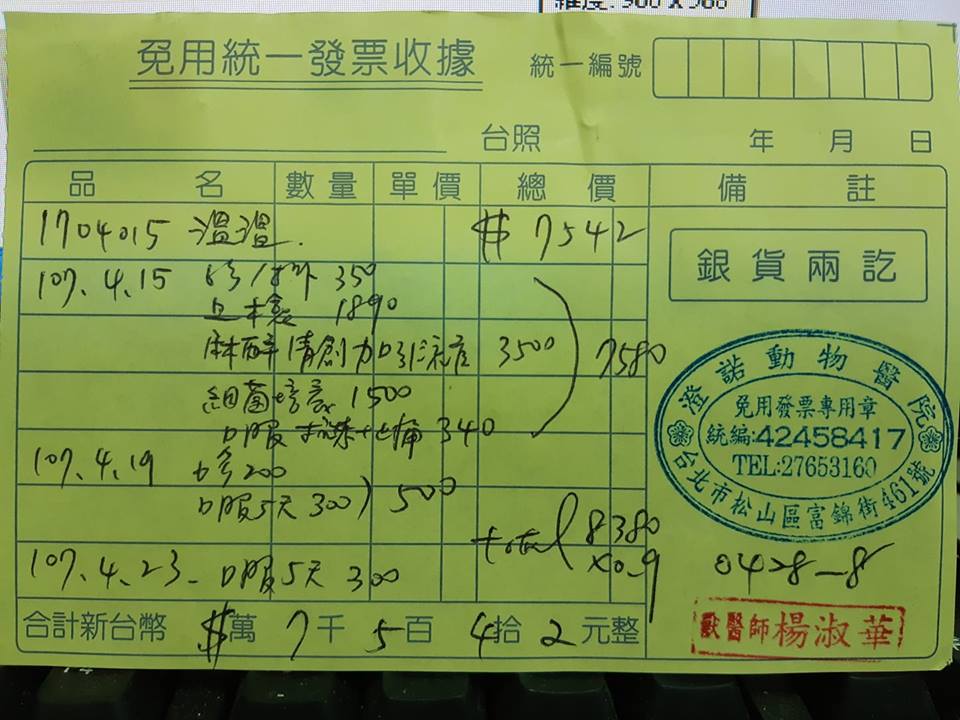 免用統一發票收據
統一編號
台照 年 月 日
品名 數量 單價 總價 備註
1704015 溫溫. $7542
銀貨兩訖
107.4.15 350
1890
麻醉清創加口引流 3500 7580
細菌培養 1500
口服 止痛 340
107.4.19 診200
口服5天 300 500
total 8380
x0.9
107.4.23 - 口服5天 300
0428-8
合計新台幣 $萬 7千 5百 4拾 2元整
澄諾動物醫院
免用發票專用章
統編:42458417
TEL:27653160
台北市松山區富錦街461號
獸醫師楊淑華